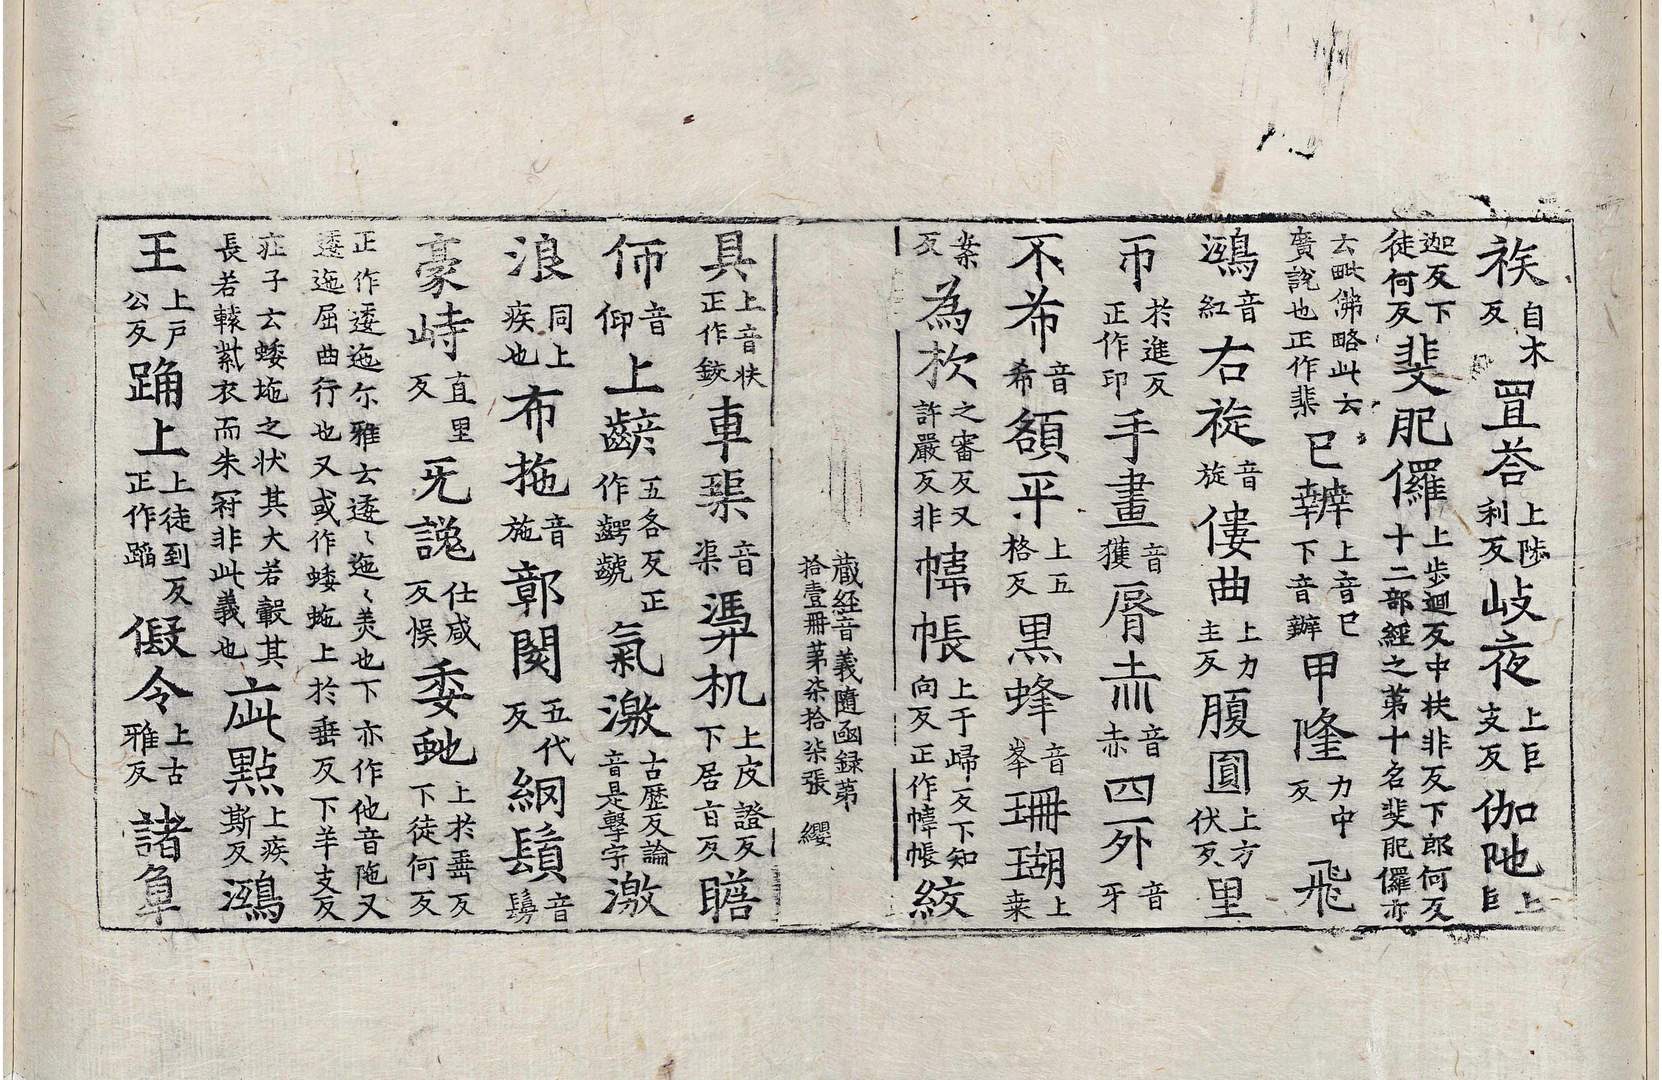 祑自木反罝荅上陟利反岐夜上巨支反伽吔上巨
迦反下徒何反斐肥儸上步迴反中扶非反下郎何反十二部經之苐十名斐肥儸亦
云毗佛略此云廣說也正作棐已辤上音巳下音辭甲隆力中反飛
鴻音紅右㨱音旋僂曲上力主反腹圓上方伏反里
帀於進反正作印手畫音獲脣赤音赤四外音牙
不希音希額平上五格反黒蜂音峯珊瑚上桒
反為杴之審反又許嚴反非幃帳上于歸反下知向反正作幃帳絞
藏経音義隨函録苐拾壹冊苐柒拾柒張 纓
具上音狀正作鉸車𤧚音渠凴机上皮證反下居盲反瞻
仰音仰上齶五各反正作齶氣激古歴反論音是擊字激
浪同上疾也布拖音施鄣閡五代反網鬚音鬄
豪峙直里反旡讒仕咸反悮委虵上於垂反下徒何反
正作逶迤尒雅云逶〻迤〻羙也下亦作他音陁又逶迤屈曲行也又或作蜲蚫上於垂反下羊支反
莊子云蜲虵之状其大若轂其長若轅紫衣而朱冠非此義也疵點上疾斯反鴻
王上戸公反踊上上徒到反正作蹈假令上古雅反諸阜